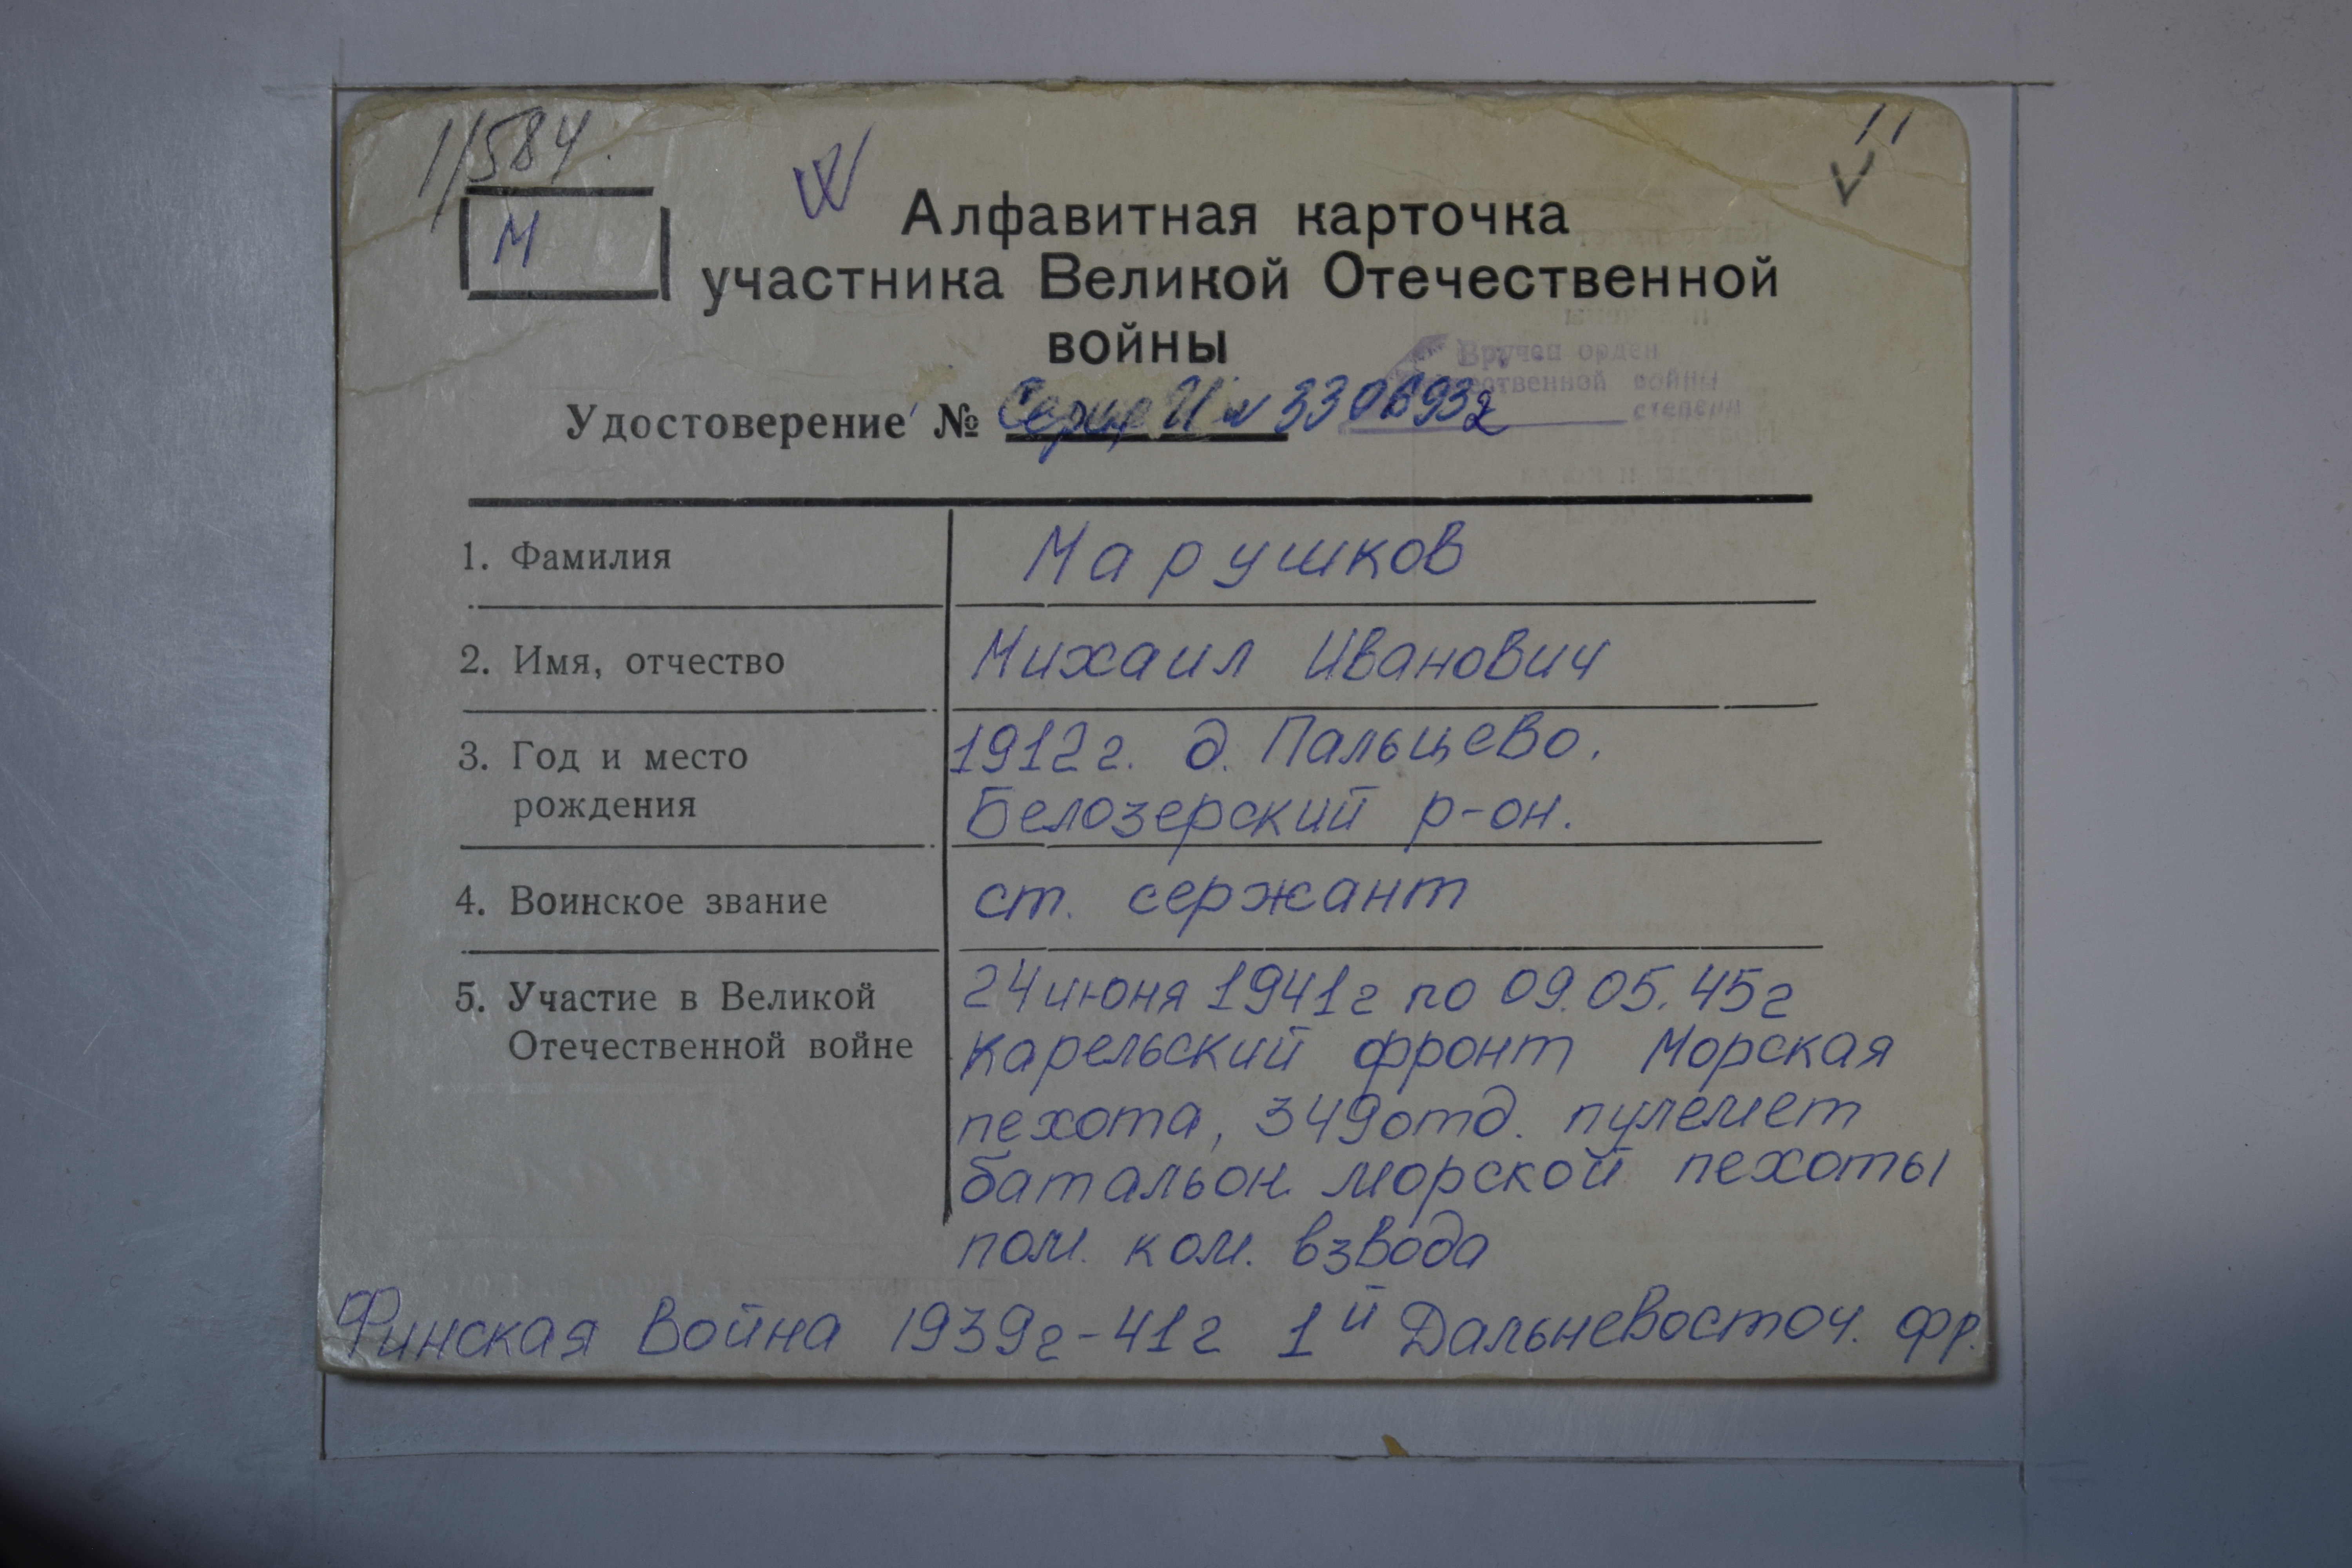 1/584.
М
11
Алфавитная карточка
участника Великой Отечественной
войны
Вручен орден
ественной войны
степени
Удостоверение № Серия И № 330693
1. Фамилия Марушков
2. Имя, отчество Михаил Иванович
3. Год и место 1912 г. д. Пальцево.
рождения Белозерский р-он.
4. Воинское звание ст. сержант
5. Участие в Великой 24 июня 1941г по 09.05.45г
Отечественной войне Карельский фронт Морская
пехота, 349 отд. пулемет
батальон морской пехоты
пом. ком. взвода
Финская война 1939г-41г 1й Дальневосточ. фр.